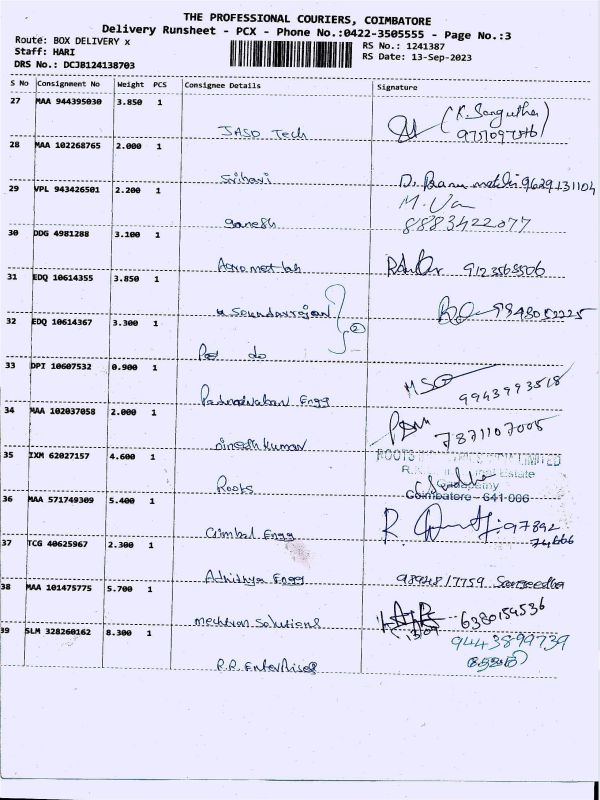 THE PROFESSIONAL COURIERS, COIMBATORE
Delivery Runsheet - PCX - Phone No.:0422-3505555 - Page No.:3
Route: BOX DELIVERY x
RS No.: 1241387
Staff: HARI
RS Date: 13-Sep-2023
DRS No.: DCJB124138703
S No Consignment No Weight PCS Consignee Details Signature
27 MAA 944395030 3.850 1
JASD Tech
28 MAA 102268765 2.000 1
Srihari
9629131104
29 VPL 943426501 2.200 1
ganesh
8883422077
30 DDG 4981288 3.100 1
Acromet lab
9123565506
31 EDQ 10614355 3.850 1
Soundarrajan
32 EDQ 10614367 3.300 1
do
2
33 DPI 10607532 0.900 1
Padmanaban Engg
9943993518
34 MAA 102037058 2.000 1
dinesh kumar
7871107005
35 IXM 62027157 4.600 1
Roots
ROOTS LIMITED
Estate
Coimbatore - 641 006
36 MAA 571749309 5.400 1
Gimbal Engg
R
97892
74666
37 TCG 40625967 2.300 1
Adhithya Engg
9894817759
38 MAA 101475775 5.700 1
mechtron Solutions
6380154536
39 SLM 328260162 8.300 1
P.P. Enterprises
9443899739